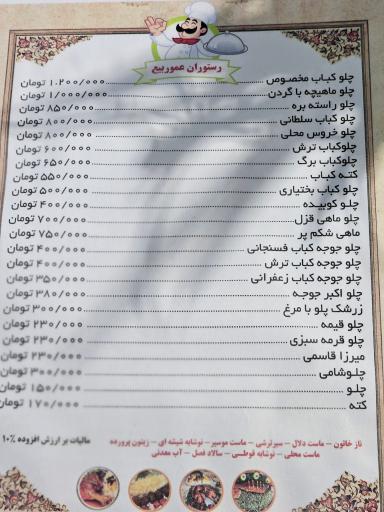 رستوران عموربیع
چلو کباب مخصوص ۱.۲۰۰/۰۰۰ تومان
چلو ماهیچه با گردن ۱/۰۰۰/۰۰۰ تومان
چلو راسته بره ۸۵۰/۰۰۰ تومان
چلو کباب سلطانی ۸۰۰/۰۰۰ تومان
چلو خروس محلی ۸۰۰/۰۰۰ تومان
چلوکباب ترش ۶۰۰/۰۰۰ تومان
چلوکباب برگ ۶۵۰/۰۰۰ تومان
کته کباب ۵۵۰/۰۰۰ تومان
چلو کباب بختیاری ۵۰۰/۰۰۰ تومان
چلو کوبیده ۴۰۰/۰۰۰ تومان
چلو ماهی قزل ۷۰۰/۰۰۰ تومان
ماهی شکم پر ۷۵۰/۰۰۰ تومان
چلو جوجه کباب فسنجانی ۴۰۰/۰۰۰ تومان
چلو جوجه کباب ترش ۴۰۰/۰۰۰ تومان
چلو جوجه کباب زعفرانی ۳۵۰/۰۰۰ تومان
چلو اکبر جوجه ۳۸۰/۰۰۰ تومان
زرشک پلو با مرغ ۳۰۰/۰۰۰ تومان
چلو قیمه ۲۳۰/۰۰۰ تومان
چلو قرمه سبزی ۲۳۰/۰۰۰ تومان
میرزا قاسمی ۲۳۰/۰۰۰ تومان
چلوشامی ۳۰۰/۰۰۰ تومان
چلو ۱۵۰/۰۰۰ تومان
کته ۱۷۰/۰۰۰ تومان
ناز خاتون - ماست دلال - سیرترشی - ماست موسیر - نوشابه شیشه ای - زیتون پرورده
ماست محلی - نوشابه قوطی - سالاد فصل - آب معدنی
مالیات بر ارزش افزوده ۱۰٪